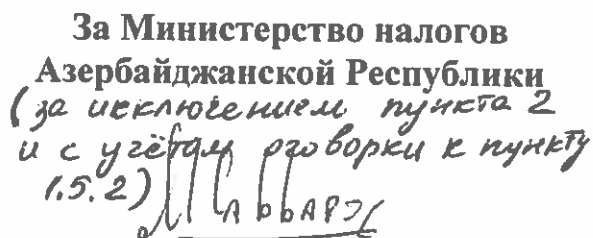 За Министерство налогов
Азербайджанской Республики
(за исключением пункта 2
и с учётом оговорки к пункту
1.5.2)